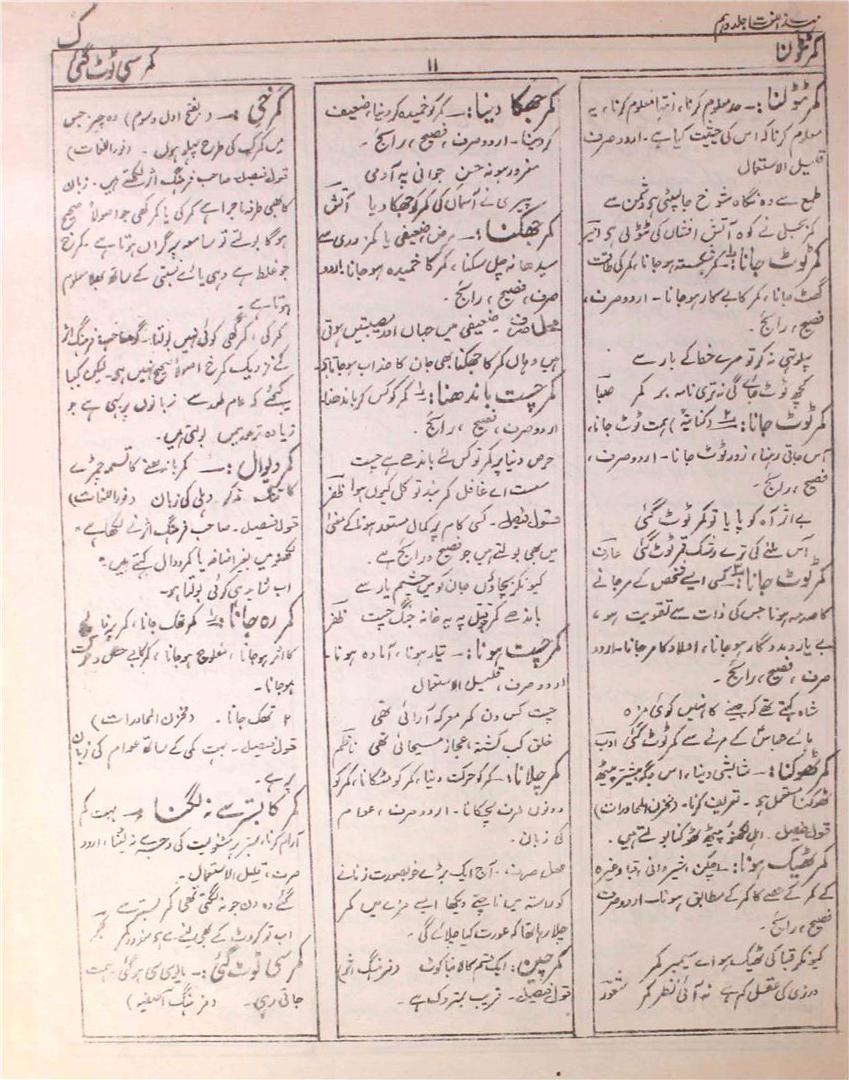 مہذب اللغت، جلد دہم
ک
کمر ٹوٹنا
۱۱
کمر سی ٹوٹ گئی
کمر ٹٹولنا:۔ حد معلوم کرنا، انتہا معلوم کرنا، یہ
معلوم کرنا کہ اس کی حیثیت کیا ہے۔ اردو صرف
قلیل الاستعمال
طمع سے وہ نگاہ شوخ جا لپٹی ہو دشمن سے
کمر بجلی نے کوہ آتش افشاں کی ٹٹولی ہو
کمر ٹوٹ جانا: ۱؎ کمر شکستہ ہو جانا، کمر کی طاقت
گھٹ جانا، کمر کا بے کار ہو جانا۔ اردو صرف،
فصیح، رائج۔
پہلو تہی نہ کر تو مرے خط کے بار سے
کچھ ٹوٹ جائے گی نہ تری نامہ بر کمر صبا
کمر ٹوٹ جانا: ۲؎ (کنایۃً) ہمت ٹوٹ جانا،
آس جاتی رہنا، زور ٹوٹ جانا۔ اردو صرف،
فصیح، رائج۔
بے اثر آہ کو پایا تو کمر ٹوٹ گئی
آس ملنے کی ترے رشک قمر ٹوٹ گئی
کمر ٹوٹ جانا: ۳؎ کسی ایسے شخص کے مر جانے
کا صدمہ ہونا جس کی ذات سے تقویت ہو،
بے یار و مددگار ہو جانا، اولاد کا مر جانا۔ اردو
صرف، فصیح، رائج۔
شاہ کہتے تھے کہ جینے کا نہیں کوئی مزہ
ہائے عباس کے مرنے سے کمر ٹوٹ گئی ادب
کمر ٹھوکنا:۔ شاباشی دینا، اس جگہ بیشتر پیٹھ
ٹھوکنا مستعمل ہے۔ تعریف کرنا۔ (مخزن المحاورات)
قول فیصل۔ اہل لکھنؤ پیٹھ ٹھوکنا بولتے ہیں۔
کمر ٹھیک ہونا:۔ اچکن، شیروانی، قبا وغیرہ
کے کمر کے حصے کا کمر کے مطابق ہونا۔ اردو صرف
فصیح، رائج۔
کیونکر قبا کی ٹھیک ہو اے سیمبر کمر
درزی کی عقل گم ہے نہ آئی نظر کمر شعور
کمر جھکا دینا:۔ کمر کو خمیدہ کر دینا، ضعیف
کر دینا۔ اردو صرف، فصیح، رائج۔
مغرور ہو نہ حسن جوانی پہ آدمی
پیری نے آسماں کی کمر کو جھکا دیا آتش
کمر جھکنا:۔ مرض، ضعیفی یا کمزوری سے
سیدھا نہ چل سکنا، کمر کا خمیدہ ہو جانا، اردو
صرف، فصیح، رائج۔
محل صرف۔ ضعیفی میں جہاں اور مصیبتیں ہوتی
ہیں وہاں کمر کا جھکنا بھی جان کا عذاب ہو جاتا ہے
کمر چست باندھنا: ۱؎ کمر کو کس کر باندھنا۔
اردو صرف، فصیح، رائج۔
حرص دنیا پر کمر تو کس لئے باندھے ہے چست
سست اے غافل کمر بند توکل کیوں ہوا ظفر
قول فیصل۔ کسی کام پر کمال مستعد ہونا کے معنی
میں بھی بولتے ہیں جو فصیح و رائج ہے۔
کیونکر بچاؤں جان کو میں چشم یار سے
باندھے کمر قتل پہ یہ خانہ جنگ چست ظفر
کمر چست ہونا:۔ تیار ہونا، آمادہ ہونا۔
اردو صرف، قلیل الاستعمال
چست کس دن کمر معرکہ آرائی تھی
خلق کب کشتۂ اعجاز مسیحائی تھی ناظم
کمر چلانا: کمر کو حرکت دینا، کمر کو مٹکانا، کمر کو
دونوں طرف لچکانا۔ اردو صرف، عوام
کی زبان۔
محل صرف۔ آج ایک بڑے خوبصورت زنانے
کو راستہ میں ناچتے دیکھا ایسے مزے میں کمر
چلا رہا تھا کہ عورت کیا چلائے گی۔
کمر چین: ایک قسم کا لانبا کوٹ (فرہنگ اثر)
قول فیصل۔ قریب بہ متروک ہے۔
کمرخی:۔ (بفتح اول و سوم) وہ چیز جس
میں کمرک کی طرح پہلو ہوں۔ (نور اللغات)
قول فیصل۔ صاحب فرہنگ اثر لکھتے ہیں۔ زبان
کا بھی طرفہ ماجرا ہے کمرکی یا کمرکھی جو اصولاً صحیح
ہوگا بولئے تو سامعہ پر گراں ہوتا ہے۔ کمرخ
جو غلط ہے وہی یائے نسبتی کے ساتھ بھلا معلوم
ہوتا ہے۔
کمرکی، کمرکھی کوئی نہیں بولتا۔ گو صاحب فرہنگ اثر
کے نزدیک کمرخ اصولاً صحیح نہیں ہو۔ لیکن کیا
کیجئے کہ عام طور سے زبانوں پر یہی ہے جو
زیادہ تر عورتیں بولتی ہیں۔
کمر دیوال:۔ کمر باندھنے کا تسمہ چمڑے
کا تنگ۔ مذکر دہلی کی زبان (نور اللغات)
قول فیصل۔ صاحب فرہنگ اثر نے لکھا ہے۔
لکھنؤ میں بغیر اضافہ یا کمر دوال کہتے ہیں۔
اب شاید ہی کوئی بولتا ہو۔
کمر رہ جانا: ۱؎ کمر تھک جانا، کمر پر
کا اثر ہو جانا، مفلوج ہو جانا، کمر کا بے حس و حرکت
ہو جانا۔
۲ تھک جانا۔ (مخزن المحاورات)
قول فیصل۔ بہت کمی کے ساتھ عوام کی زبان
پر ہے۔
کمر کا بستر سے نہ لگنا:۔ بہت کم
آرام کرنا، بستر پر مشغولیت کی وجہ سے نہ لیٹنا، اردو
صرف، قلیل الاستعمال۔
گئے وہ دن جو نہ لگتی تھی کمر بستر سے
اب تو کروٹ کے بھی لینے سے ہو
کمر سی ٹوٹ گئی:۔ مایوسی سی ہو گئی، ہمت
جاتی رہی۔ (فرہنگ آصفیہ)